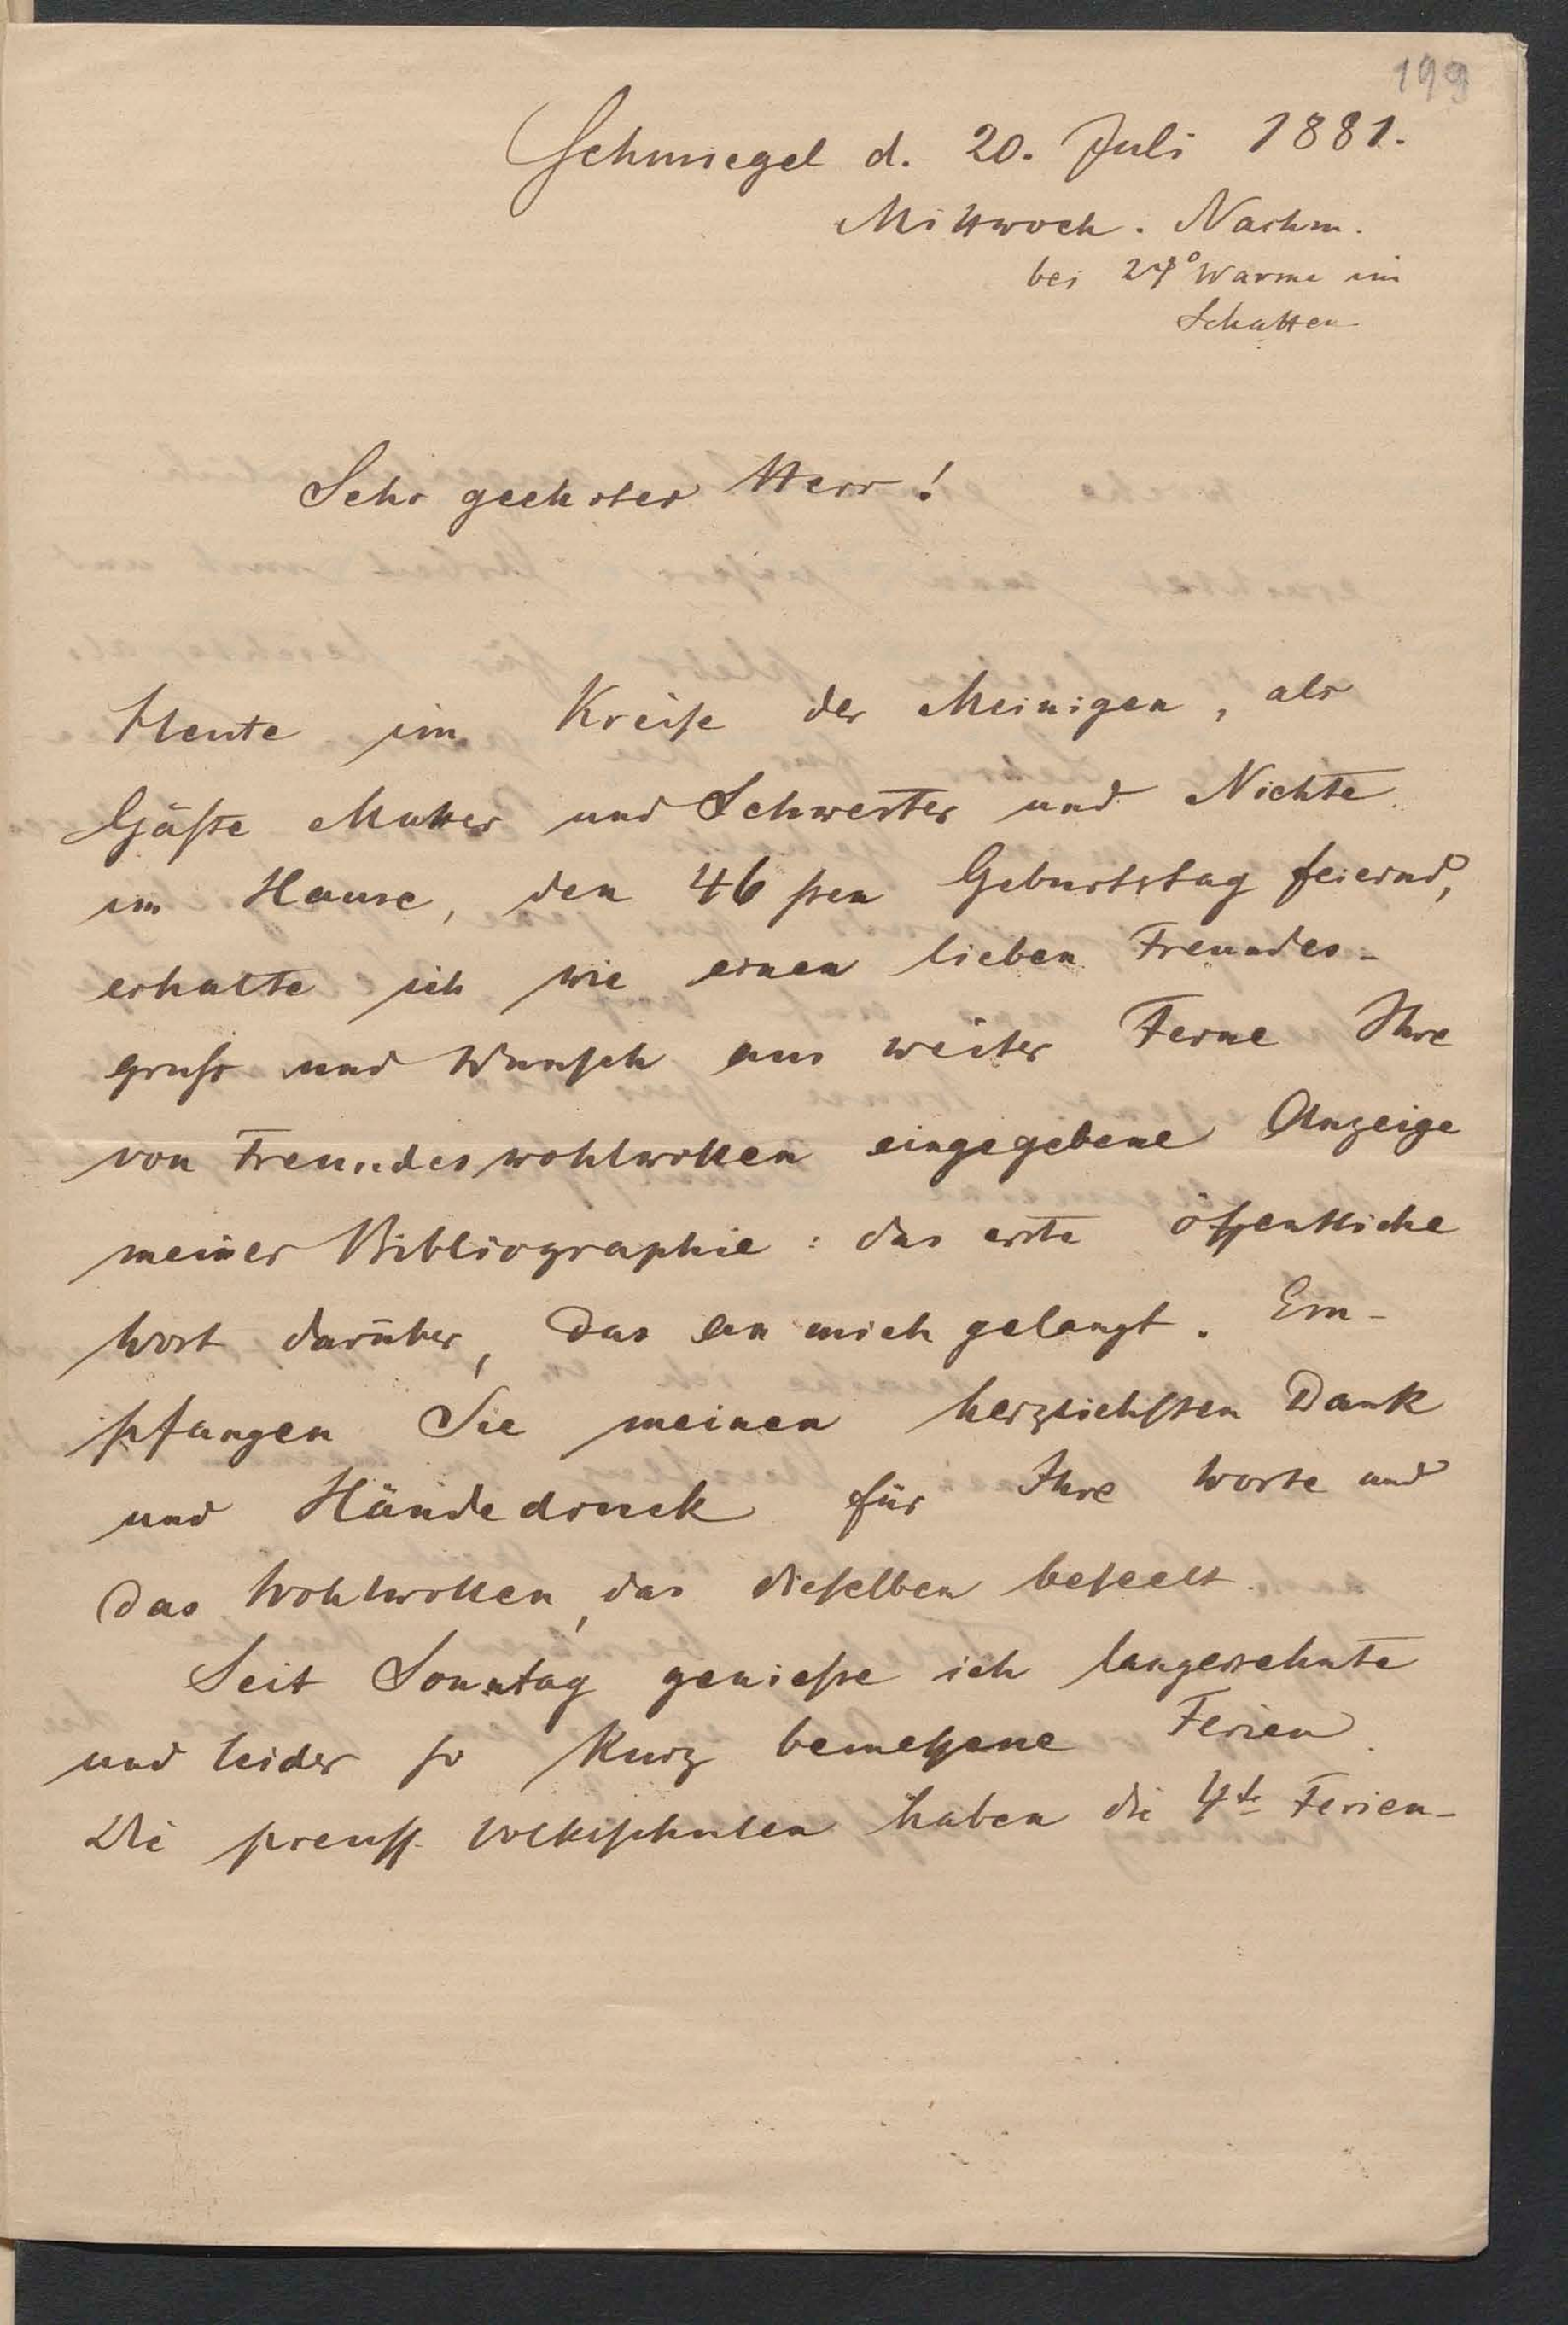 199
Schmiegel d. 20. Juli 1881.
Mittwoch. Nachm.
bei 27° Wärme im
Schatten
Sehr geehrter Herr!
Heute im Kreiſe der Meinigen, als
Gäſte Mutter und Schwester und Nichte
im Hause, den 46ſten Geburtstag feiernd,
erhalte ich wie einen lieben Freundes-
gruß und Wunſch aus weiter Ferne Ihre
von Freundeswohlwollen eingegebene Anzeige
meiner Bibliographie: das erste öffentliche
Wort darüber, das an mich gelangt. Em-
pfangen Sie meinen herzlichſten Dank
und Händedruck für Ihre Worte und
das Wohlwollen, das dieſelben beſeelt.
Seit Sonntag genieße ich langersehnte
und leider ſo kurz bemeſſene Ferien.
Die preuſſ. Volksſchulen haben die 4te Ferien-